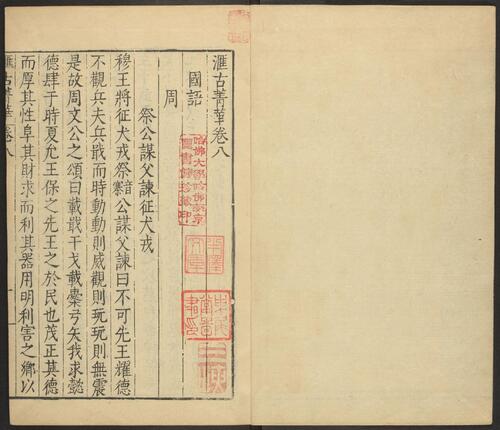 滙古菁華卷八
國語
周
祭公謀父諫征犬戎
穆王將征犬戎祭音蔡公謀父諫曰不可先王耀德
不觀兵夫兵戢而時動動則威觀則玩玩則無震
是故周文公之頌曰載戢干戈載櫜弓矢我求懿
德肆于時夏允王保之先王之於民也茂正其德
而厚其性阜其財求而利其器用明利害之鄉以
滙古菁華 卷八
哈佛大學哈佛燕京
圖書館珍藏印